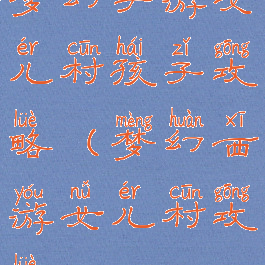 梦幻手游女
ér cūn hái zǐ gōng
儿村孩子攻
lüè mèng huàn xī
略(梦幻西
yóu nǚ ér cūn gōng
游女儿村攻
lüè